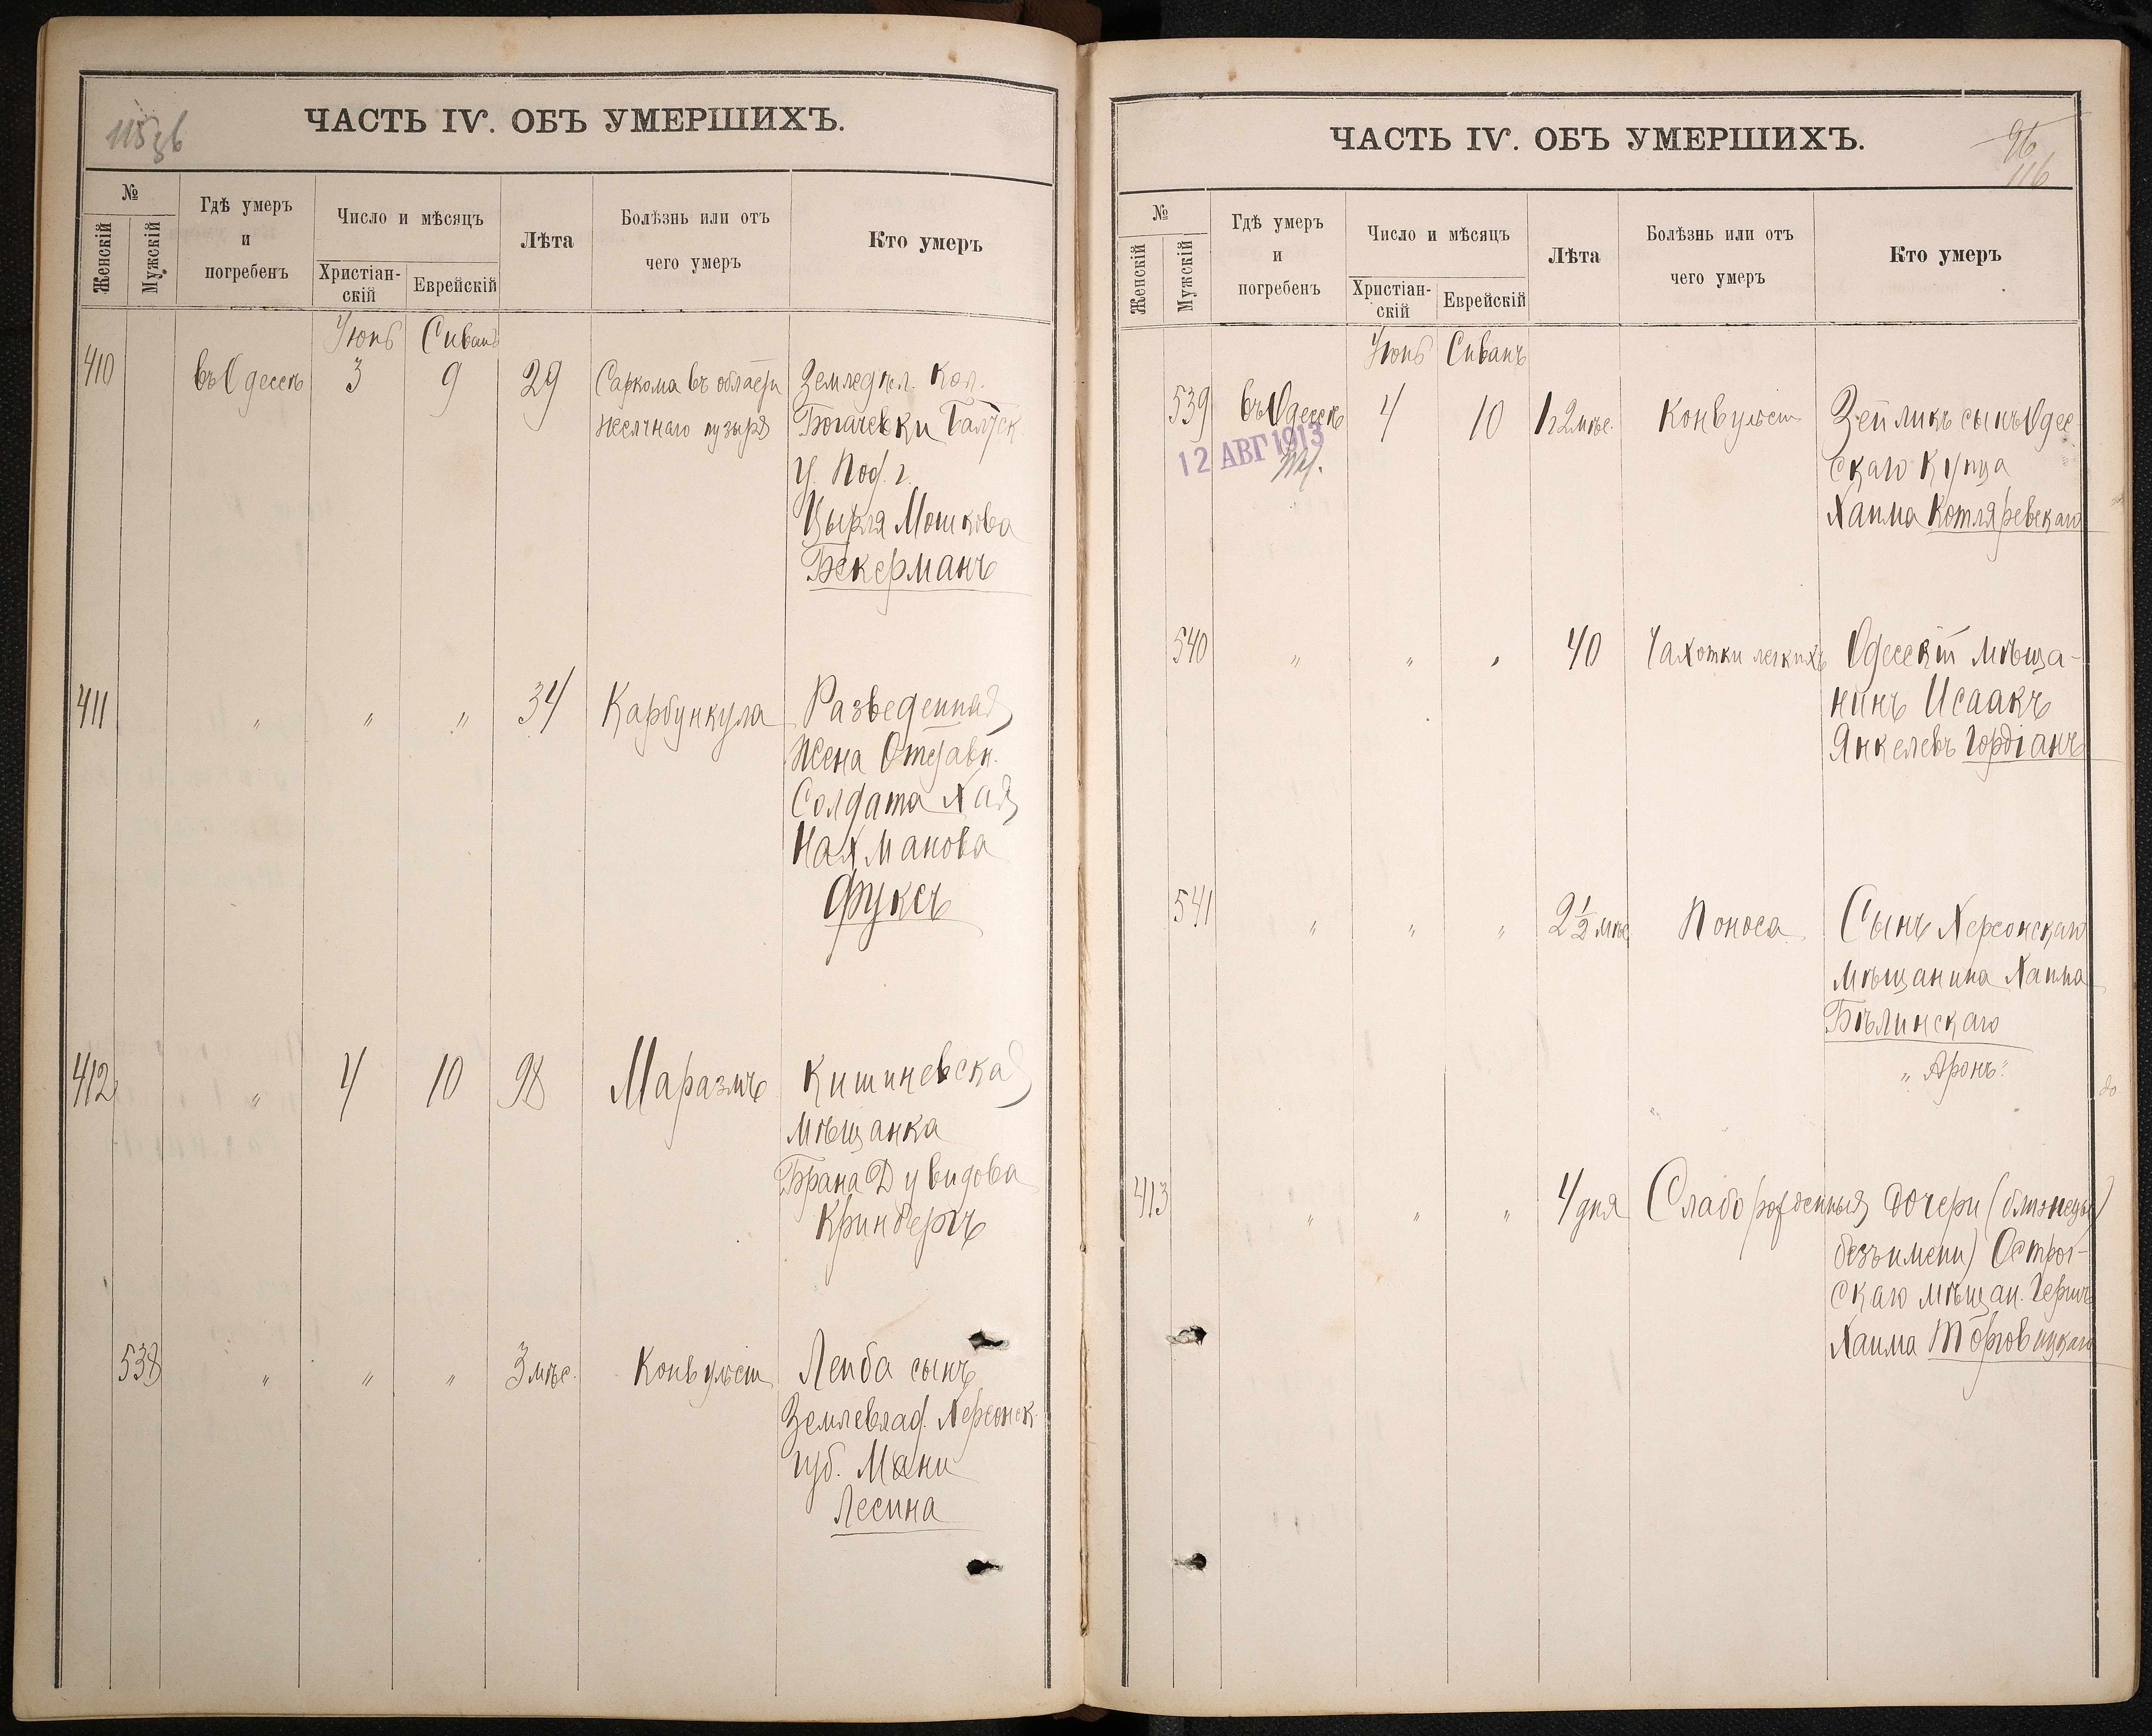 115об
ЧАСТЬ IV. ОБЪ УМЕРШИХЪ.
№
Женскій
Мужскій
Гдѣ умеръ
и
погребенъ
Число и мѣсяцъ
Христіан-
скій
Еврейскій
Лѣта
Болѣзнь или отъ
чего умеръ
Кто умеръ
Іюнь Сиванъ
410 въ Одессѣ 3 9 29 Саркома въ области Земледѣл. кол.
желчнаго пузыря Богачевки Балтск
у. Под. г.
Цырля Мошкова
Бекерманъ
411 " " " 34 Карбункула Разведенная
жена Отставн.
Солдата Хая
Нахманова
Фуксъ
412 " 4 10 98 Маразмъ Кишиневская
мѣщанка
Брана Дувидова
Кринбергъ
538 " " " 3 мѣс. Конвульсіи Лейба сынъ
Землевлад. Херсонск.
губ. Мани
Лесина
ЧАСТЬ IV. ОБЪ УМЕРШИХЪ.
96
116
№
Женскій
Мужскій
Гдѣ умеръ
и
погребенъ
Число и мѣсяцъ
Христіан-
скій
Еврейскій
Лѣта
Болѣзнь или отъ
чего умеръ
Кто умеръ
Іюнь Сиванъ
539 въ Одессѣ 4 10 1г 2 мѣс. Конвульсіи Зейликъ сынъ Одес-
12 АВГ 1913
скаго Купца
Хаима Котляревскаго
540 " " " 40 Чахотки легкихъ Одесскій мѣща-
нинъ Исаакъ
Янкелевъ Гордіанъ
541 " " " 2 1/2 мѣс Поноса Сынъ Херсонскаго
мѣщанина Хаима
Бѣлинскаго
"Аронъ"
413 " " " 4 дня Слаборожденныя Дочери (близнецы)
безъ имени) Острог-
скаго мѣщан. Герша
Хаима Торговицкаго